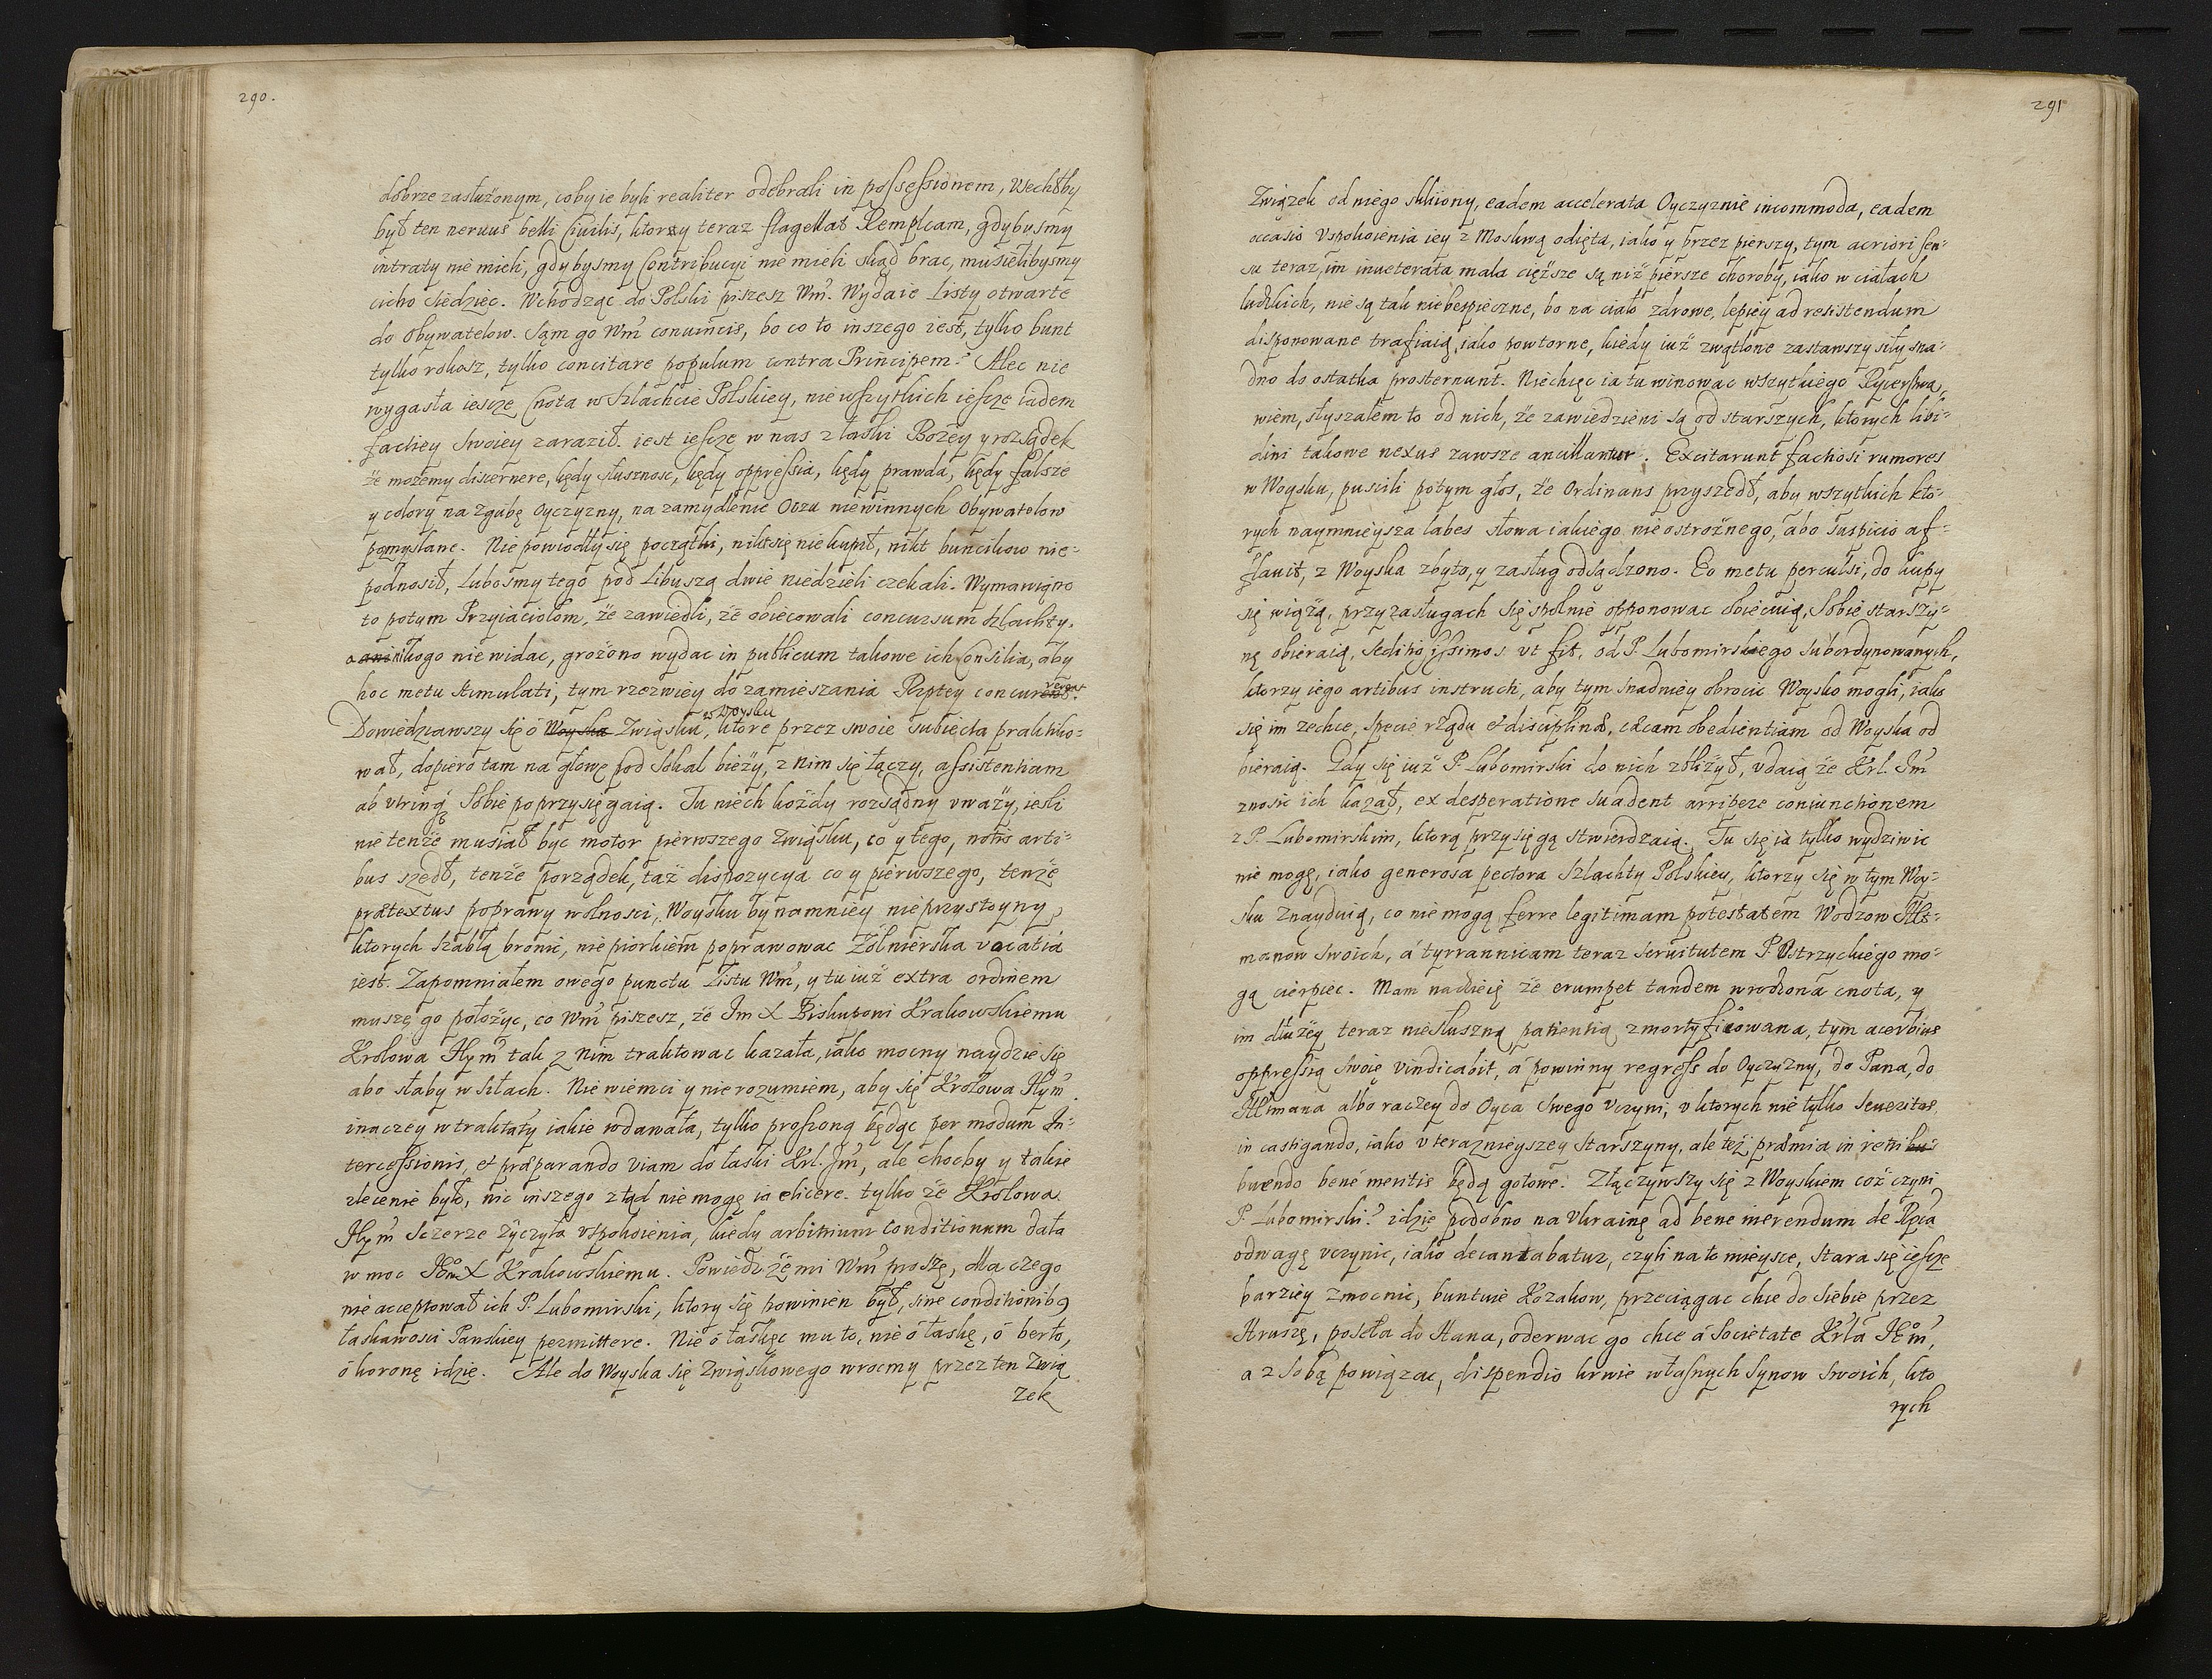 290.
dobrze zasłużonym, coby ie byli realiter odebrali in possessionem, Wechtby
był ten neruus belli Ciuilis, ktorzy teraz flagellat Remplcam, gdybysmy
intraty nie mieli, gdybysmy Contribucyi nie mieli skąd brac, musielibysmy
cicho siedziec. Wchodząc do Polski piszesz Wm̃. Wydaie Listy otwarte
do Obywatelow. Sąm go Wm̃ conuincis, bo co to inszego iest, tylko bunt
tylko rokosz, tylko concitare populum contra Principem? Alec nie
wygasła iescze Cnota w Szlachcie Polskiey, nie wszytkich iescze iadem
factiey swoiey zaraził. iest iescze w nas z łaski Bożey y rozsądek
że możemy discernere, kędy słusznosc, kędy oppressia, kędy prawda, kędy falsze
y colory na zgubę Oyczyzny, na zamydlenie Oczu niewinnych Obywatelow
pomyslane. Nie powiodły się początki, nikt się nie kupił, nikt buncikow nie=
podnosił, lubosmy tego pod Libuszą dwie niedzieli czekali. Wymawiano
to potym Przyiaciołom, że zawiedli, że obiecowali concursum szlachty,
a nikogo nie widac, grożono wydac in publicum takowe ich Consilia, aby
hoc metu stimulati, tym rzezwiey do zamieszania Rzptey concurrerent.
Dowiedziawszy się o Woyska Związku w Woysku, ktore przez swoie subiecta praktiko=
wał, dopiero tam na głowę pod Sokal bieży, z nim się łączy, assistentiam
ab vtrinq̃ sobie poprzysięgaią. Tu niech kożdy rozsądny vważy, iesli
nie tenże musiał byc motor pierwszego Związku, co y tego, notis arti=
bus szedł, tenże porządek, taż dispozycya co y pierwszego, tenże
prætextus poprawy wolnosci, Woysku bynamniey nieprzystoyny,
ktorych szablą bronic, nie piorkiem poprawowac Żołnierska vocatia
iest. Zapomniałem owego punctu Listu Wm̃, y tu iuż extra ordinem
muszę go położyc, co Wm̃ piszesz, że Jm X Biskupowi Krakowskiemu
Krolowa Jeym̃ tak z nim traktowac kazała, iako mocny naydzie się
abo słaby w siłach. Nie wiemci y nie rozumiem, aby się Krolowa Jeym̃
inaczey w traktaty iakie wdawała, tylko proszoną będąc per modum In=
tercessionis, et præparando viam do łaski Krl. Jm̃, ale chocby y takie
zlecenie było, nic inszego ztąd nie mogę ia elicere. tylko że Krolowa
Jeym̃ sczerze życzyła vspokoienia, kiedy arbitrium conditionum dała
w moc X Krakowskiemu. Powiedz żemi Wm̃ proszę, dla czego
nie acceptował ich P. Lubomirski, ktory się powinien był, sine conditionibq
łaskawosci Panskiey permittere. Nie o łaskęc mu to, nie o łaskę, o berło,
o koronę idzie. Ale do Woyska się Związkowego wrocmy przez ten Zwią
zek
291
Związek od niego skliiony, eadem accelerata Oyczyznie incommoda, eadem
occasio vspokoienia iey z Moskwą odięta, iako y przez pierszy, tym acriori sen=
su teraz, im inueterata mala cięższe są niż piersze choroby, iako w ciałach
ludzkich, nie są tak niebespieczne, bo na ciało zdrowe, lepiey ad resistendum
disponowane trafiaią, iako powtorne, kiedy iuż zwątlone zastawszy siły sna=
dno do ostatka prosternunt. Niechcęc ia tu winowac wszytkiego Rycerstwa,
wiem, słyszałem to od nich, że zawiedzieni są od starszych, ktorych libi=
dini takowe nexus zawsze ancillantur. Excitarunt factiosi rumores
w Woysku, puscili potym głos, że Ordinans przyszedł, aby wszytkich kto=
rych naymnieysza labes słowa iakiego nieostrożnego, abo suspicio af=
flauit, z Woyska zbyto, y zasług odsądzono. Eo metu perculsi, do kupy
się wiążą, przy zasługach się spolnie opponowac obiecuią, Sobie starszy=
nę obieraią, seditiosissimos vt fit, od P. Lubomirskiego subordynowanych,
ktorzy iego artibus instructi, aby tym snadniey obrocic Woysko mogli, iako
się im zechce, specie rządu et disciplinæ, cæcam obedientiam od Woyska od
bieraią. Gdy się iuż P. Lubomirski do nich zbliżył, vdaią że Krl. Jm̃
znosic ich kazał, ex desperatione suadent arripere coniunctionem
z P. Lubomirskim, ktorą przysięgą stwierdzaią. Tu się ia tylko wydziwic
nie mogę, iako generosa pectora Szlachty Polskiey, ktorzy się w tym Woy=
sku znayduią, co nie mogą ferre legitimam potestatem Wodzow Het=
manow swoich, á tyrrannicam teraz seruitutem P. Ostrzyckiego mo=
gą cierpiec. Mam nadzieię że erumpet tandem wrodzona cnota, y
im dłużey teraz niesłuszną patientią zmortyficowana, tym acerbius
oppressią swoię vindicabit, á powinny regress do Oyczyzny, do Pana, do
Hetmana albo raczey do Oyca swego vczyni, v ktorych nie tylko seueritas
in castigando, iako v teraznieyszey Starszyny, ale też præmia in retribu=
buendo bene meritis będą gotowe. Złączywszy się z Woyskiem coż czyni
P. Lubomirski? idzie podobno na Vkrainę ad bene merendum de Rpca
odwagę vczynic, iako decantabatur, czyli na to mieysce, stara się iescze
barziey zmocnic, buntuie Kozakow, przeciągac chce do siebie przez
Hruszę, poseła do Hana, oderwac go chce á Societate Krla Jm̃,
a z sobą powiązac, dispendio krwie własnych Synow swoich, kto
rych